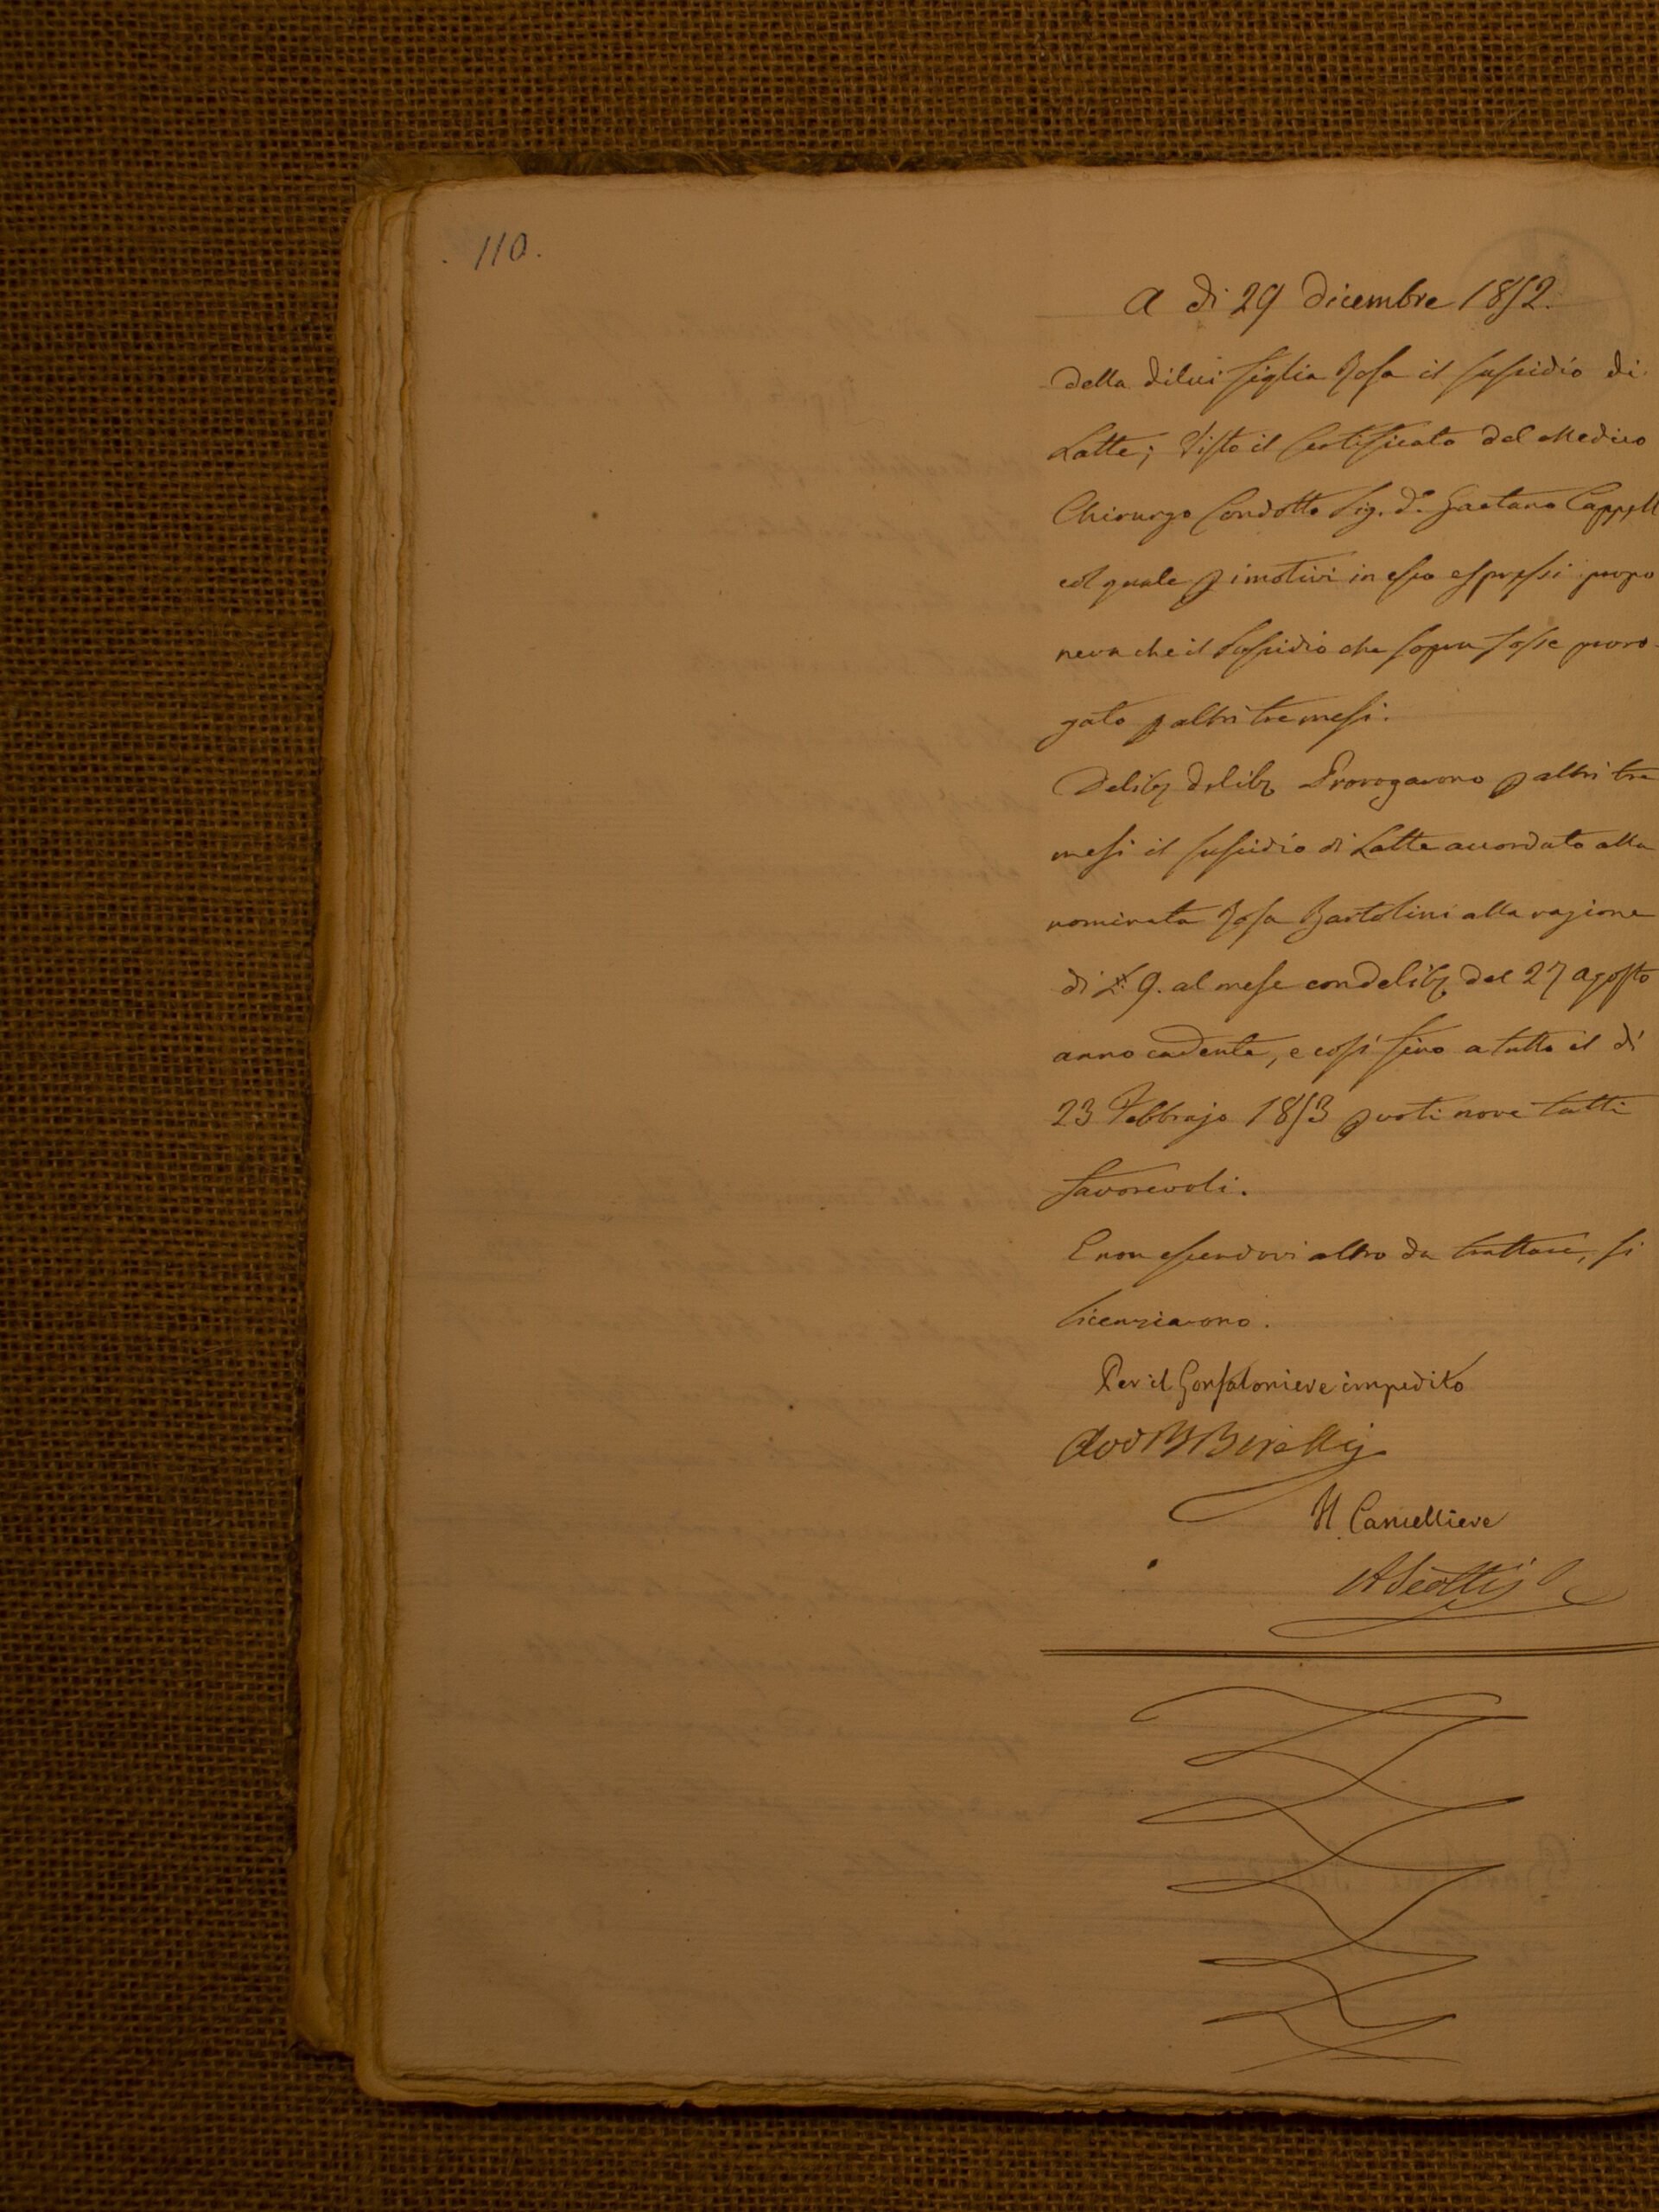 110.
A di 29 Dicembre 1852.
della dilui figlia Rosa il sussidio di
Latte; Visto il Certificato del Medico
Chirurgo Condotto Sig. Dr. Gaetano Cappell
col quale p i motivi in esso espressi propo
neva che il Sussidio che sopra fosse proro-
gato p altri tre mesi.
Delib delib Prorogarono p altri tre
mesi il sussidio di Latte accordato alla
nominata Rosa Bartolini alla ragione
di £ 9. al mese con delib del 27 agosto
anno cadente, e così fino a tutto il dì
23 Febbrajo 1853 p voti nove tutti
favorevoli.
E non essendovi altro da trattare, si
licenziarono.
Per il Gonfaloniere impedito
Il Cancelliere